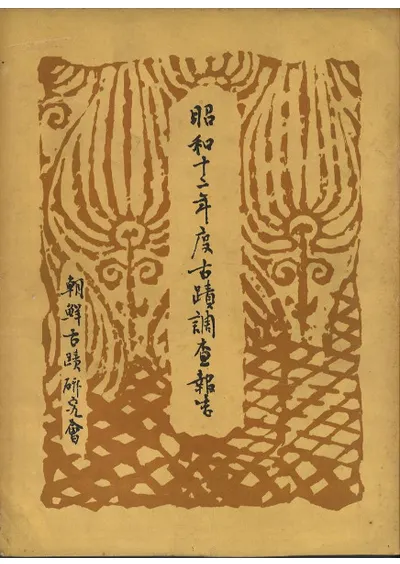 昭和十二年度古蹟調査報告
朝鮮古蹟研究會